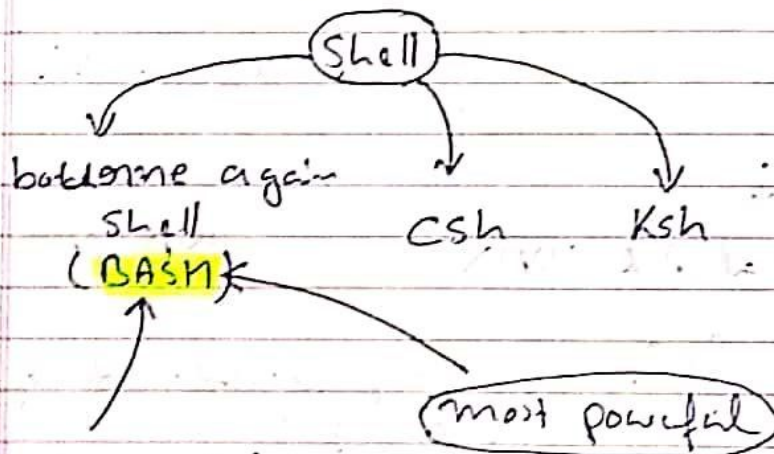 Shell
again
Shell
(BASH)
Csh
Ksh
most powerful